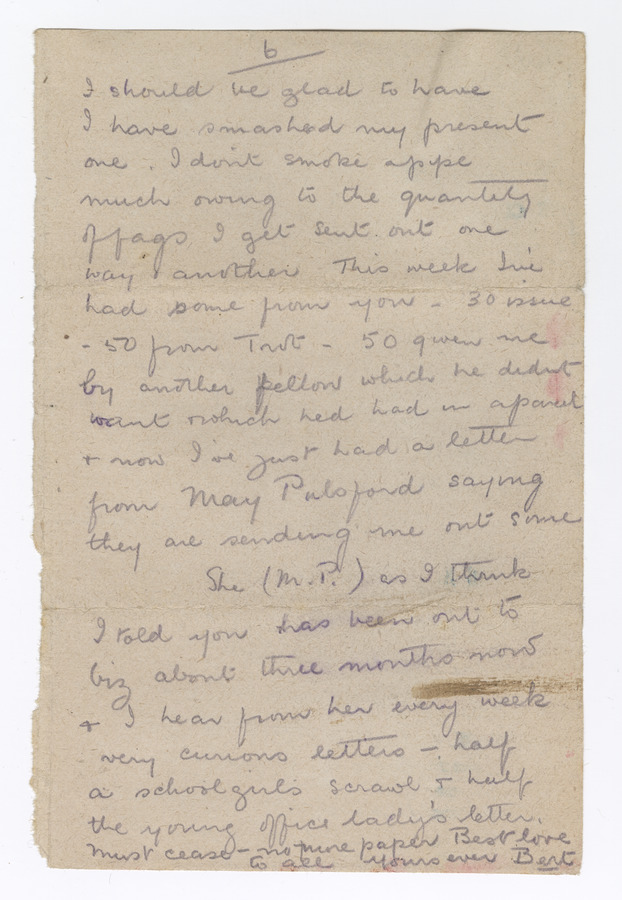 6
I should be glad to have
I have smashed my present
one. I don't smoke a pipe
much owing to the quantity
of fags I get sent out one
way & another This week I've
had some from you - 30 issue
- 50 from Trot - 50 given me
by another fellow which he didnt
want & which hed had in a parcel
& now I've just had a letter
from May Pulsford saying
they are sending me out some
She (M.P.) as I think
I told you has been out to
biz about three months now
& I hear from her every week
very curious letters - half
a schoolgirls scrawl & half
the young office lady's letter.
Must cease - no more paper Best love
to all yours ever Bert